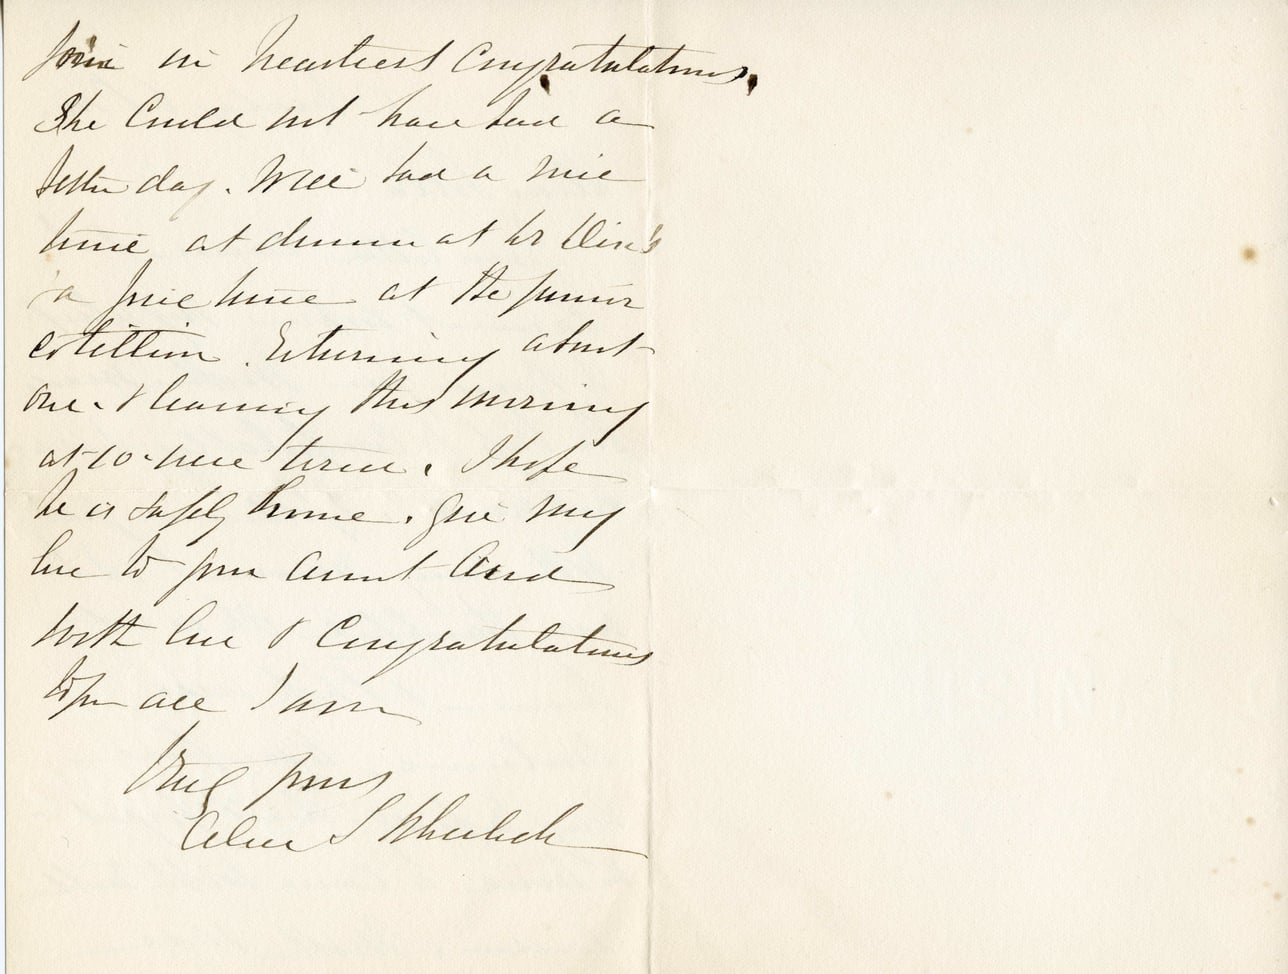 join in heartiest Congratulations.
She Could not have had a
better day. Will had a nice
time at dinner at
a fine time at the junior
cotillion. Returning about
one. & leaving this morning
at 10. I hope
he is safely home. Give my
love to your Aunt And
with love & Congratulations
to you all I am
Truly yours
S Wheelock